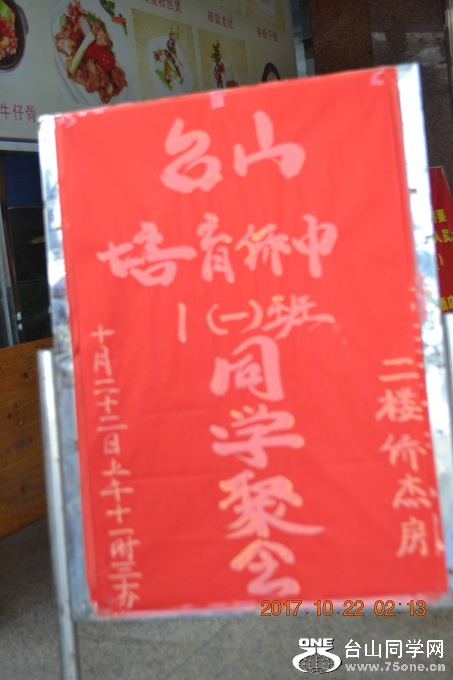 牛仔骨
台山
培育侨中
1(一)班
同学聚会
二楼侨杰房
十月二十二日上午十一时三十分
2017.10.22 02:13
ONE
台山同学网
www.75one.cn